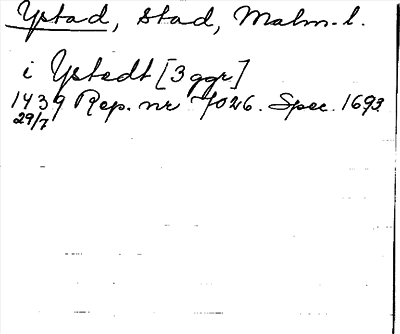 Ystad, stad, Malm. l.
i Ystedt [3 ggr]
1439 Rep. nr 7026. Spec. 1693
29/7